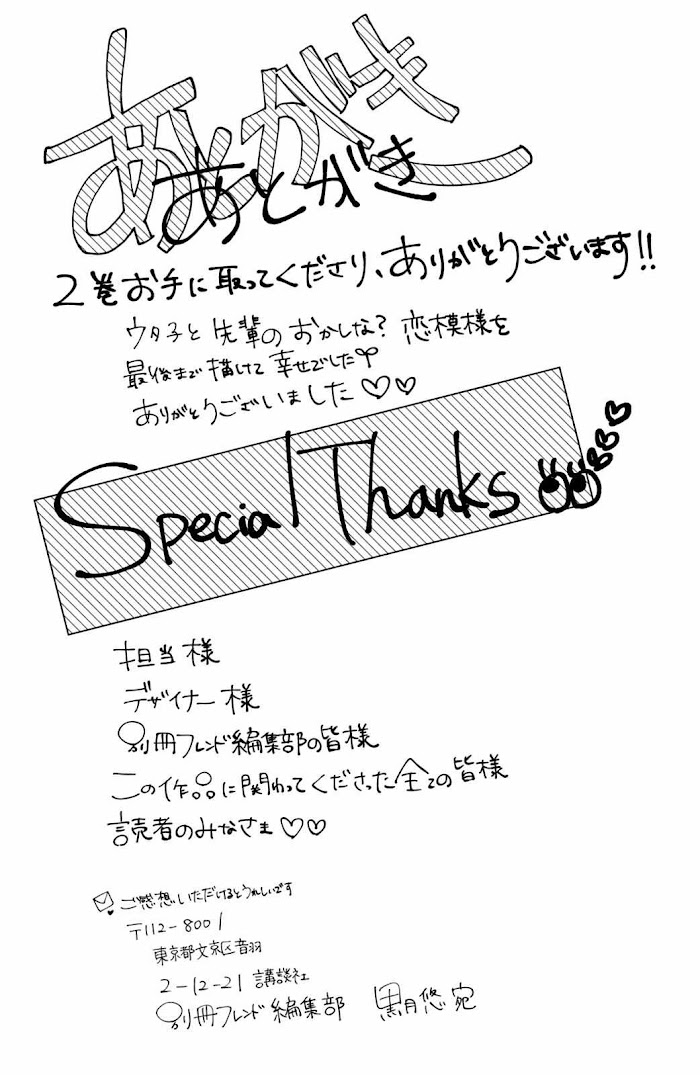 あとがき
あとがき
2巻お手に取ってくださり、ありがとうございます!!
ウタ子と先輩のおかしな?恋模様を
最後まで描けて幸せでした
ありがとうございました♡♡
Special Thanks
担当様
デザイナー様
別冊フレンド編集部の皆様
この作品に関わってくださった全ての皆様
読者のみなさま♡♡
ご感想いただけるとうれしいです
〒112-8001
東京都文京区音羽
2-12-21 講談社
別冊フレンド編集部 黒月悠 宛